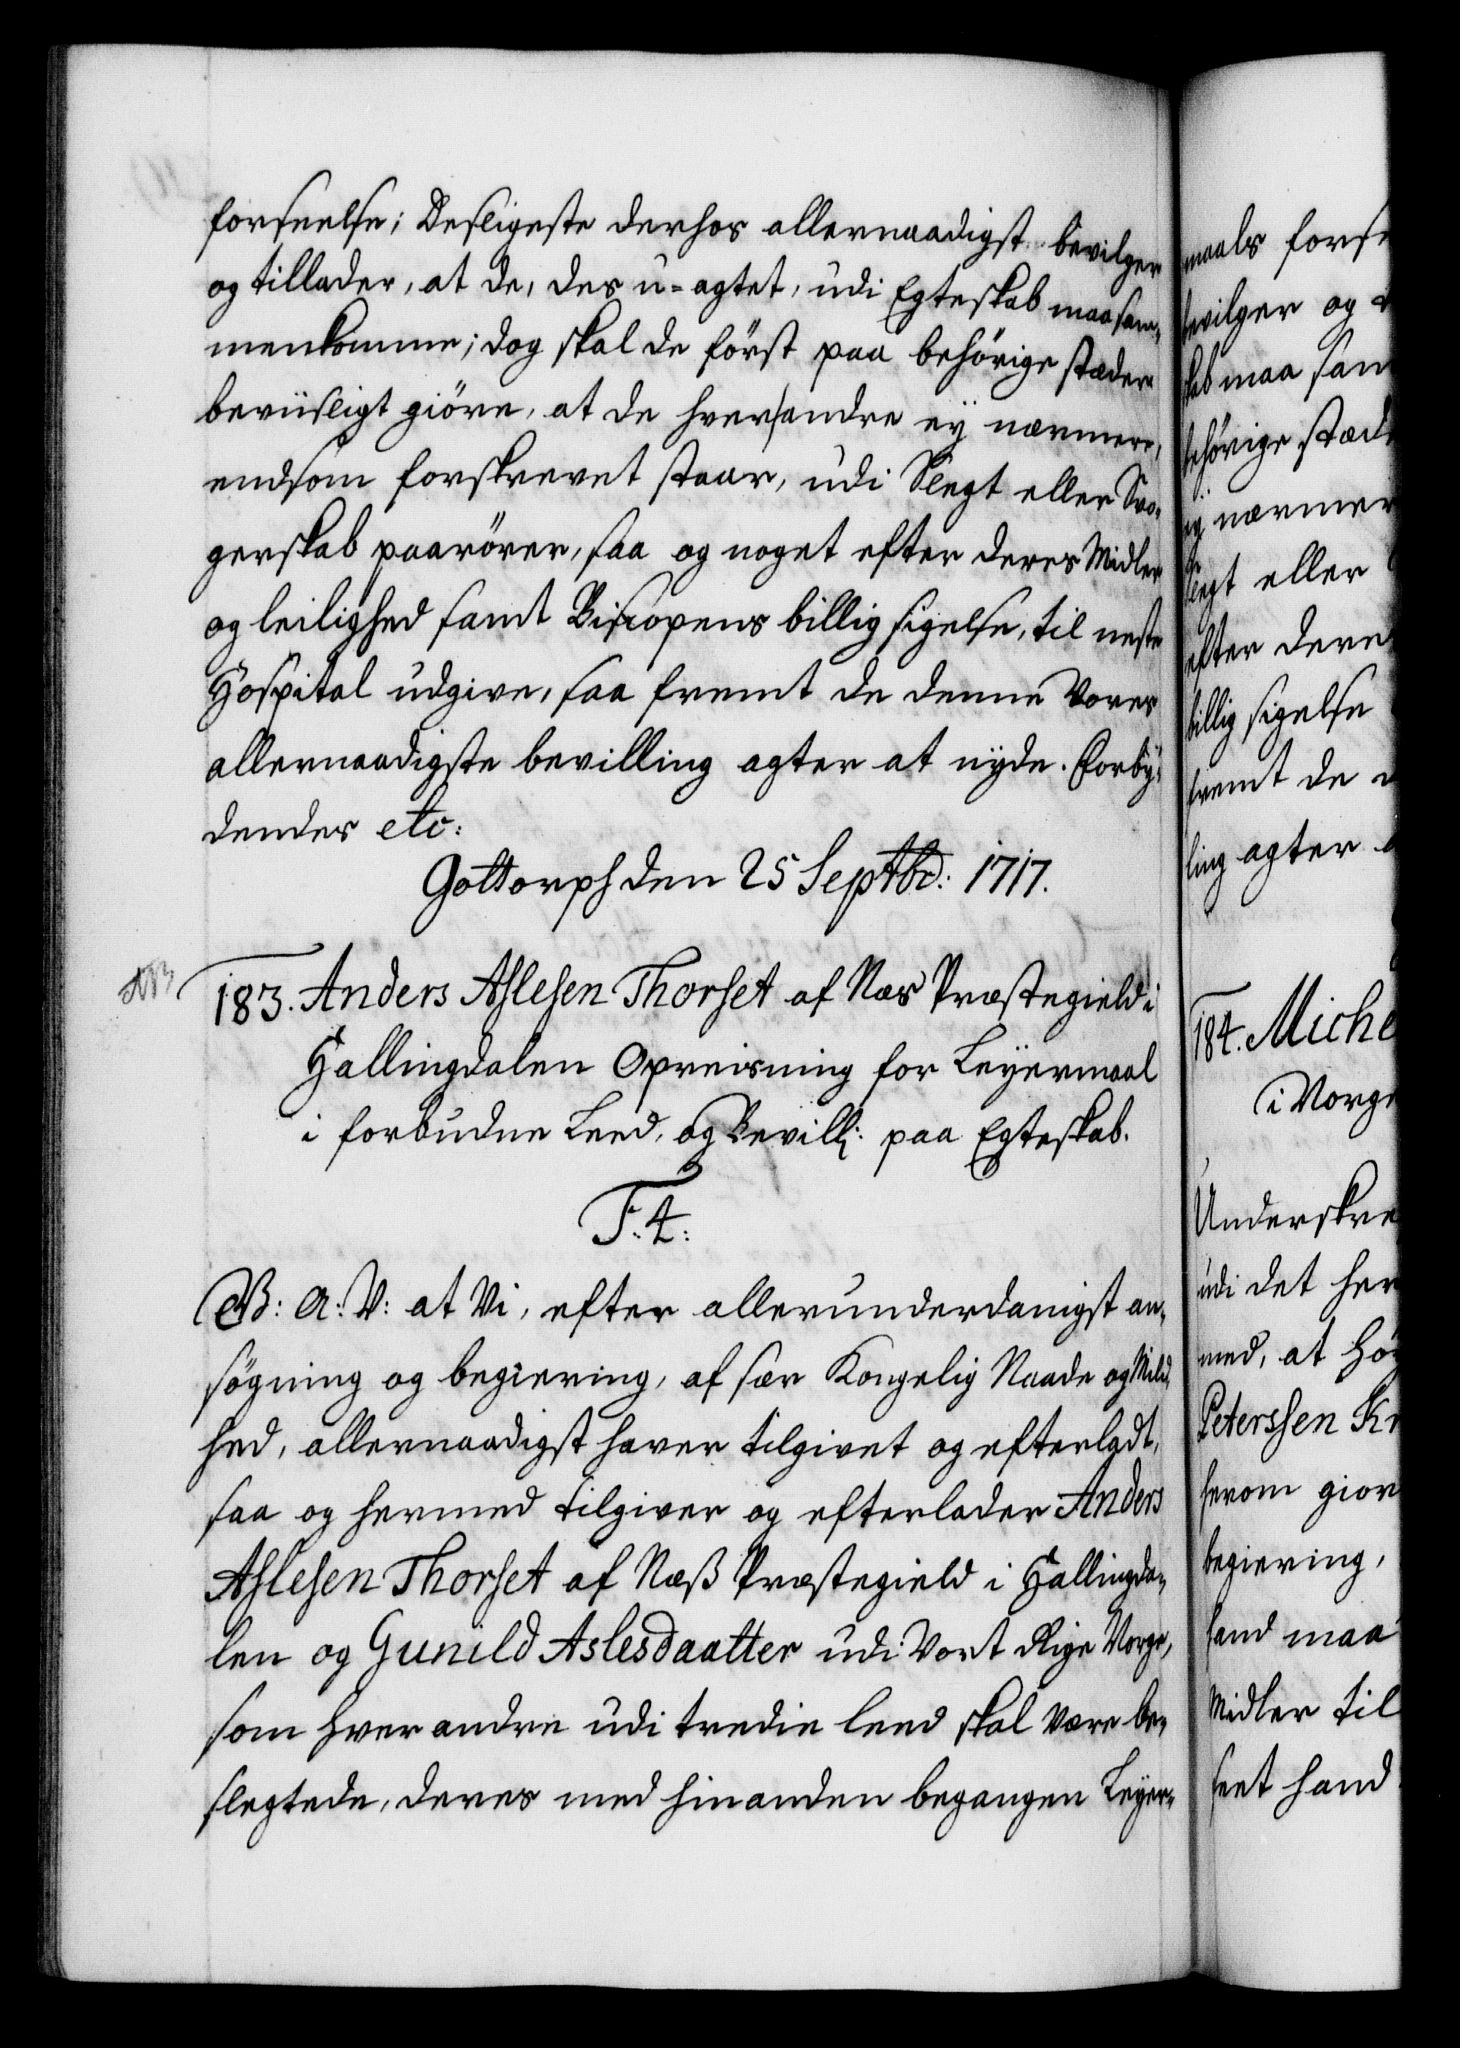 forseelse; Desligeste derhos allernaadigst bevilger
og tillader, at de, des u-agtet, udi Egteskab maa sam-
menkomme; dog skal de först paa behörige stæder
beviisligt giöre, at de hverandre ey nærmere,
end som forskrevet staar, udi Slegt eller Svo-
gerskab paarörer, saa og noget efter deres Midler
og leilighed samt Biscopens billig sigelse, til neste
Hospital udgive, saa fremt de denne Vores
allernaadigste bevilling agter at nyde. Forby-
dendes etc:
Gottorph den 25 Septbr: 1717.
NB
183. Anders Aslesen Thorset af Næs Præstegield i
Hallingdalen Opreisning for Leyermaal
i forbudne Leed, og Bevill: paa Egteskab.
F: 4:
G: A: V: at Vi, efter allerunderdanigst an-
sögning og begiering, af sær Kongelig Naade og Mild-
hed, allernaadigst haver tilgivet og efterladt,
saa og hermed tilgiver og efterlader Anders
Aslesen Thorset af Næß Præstegield i Hallingda-
len og Gunild Aslesdaatter udi Vort Rige Norge,
som hverandre udi tredie leed skal være be-
slegtede, deres med hinanden begangen Leyer-
maals forse
bevilger og t
skab maa sam
behörige stæde
ey nærmer
Slegt eller
efter dere
billig sigelse
fremt de d
ling agter a
184. Miche
i Norge
Underskre
udi det her
med, at hö
Peterssen Kr
herom gior
begiering,
hand maa
Midler til
seet hand